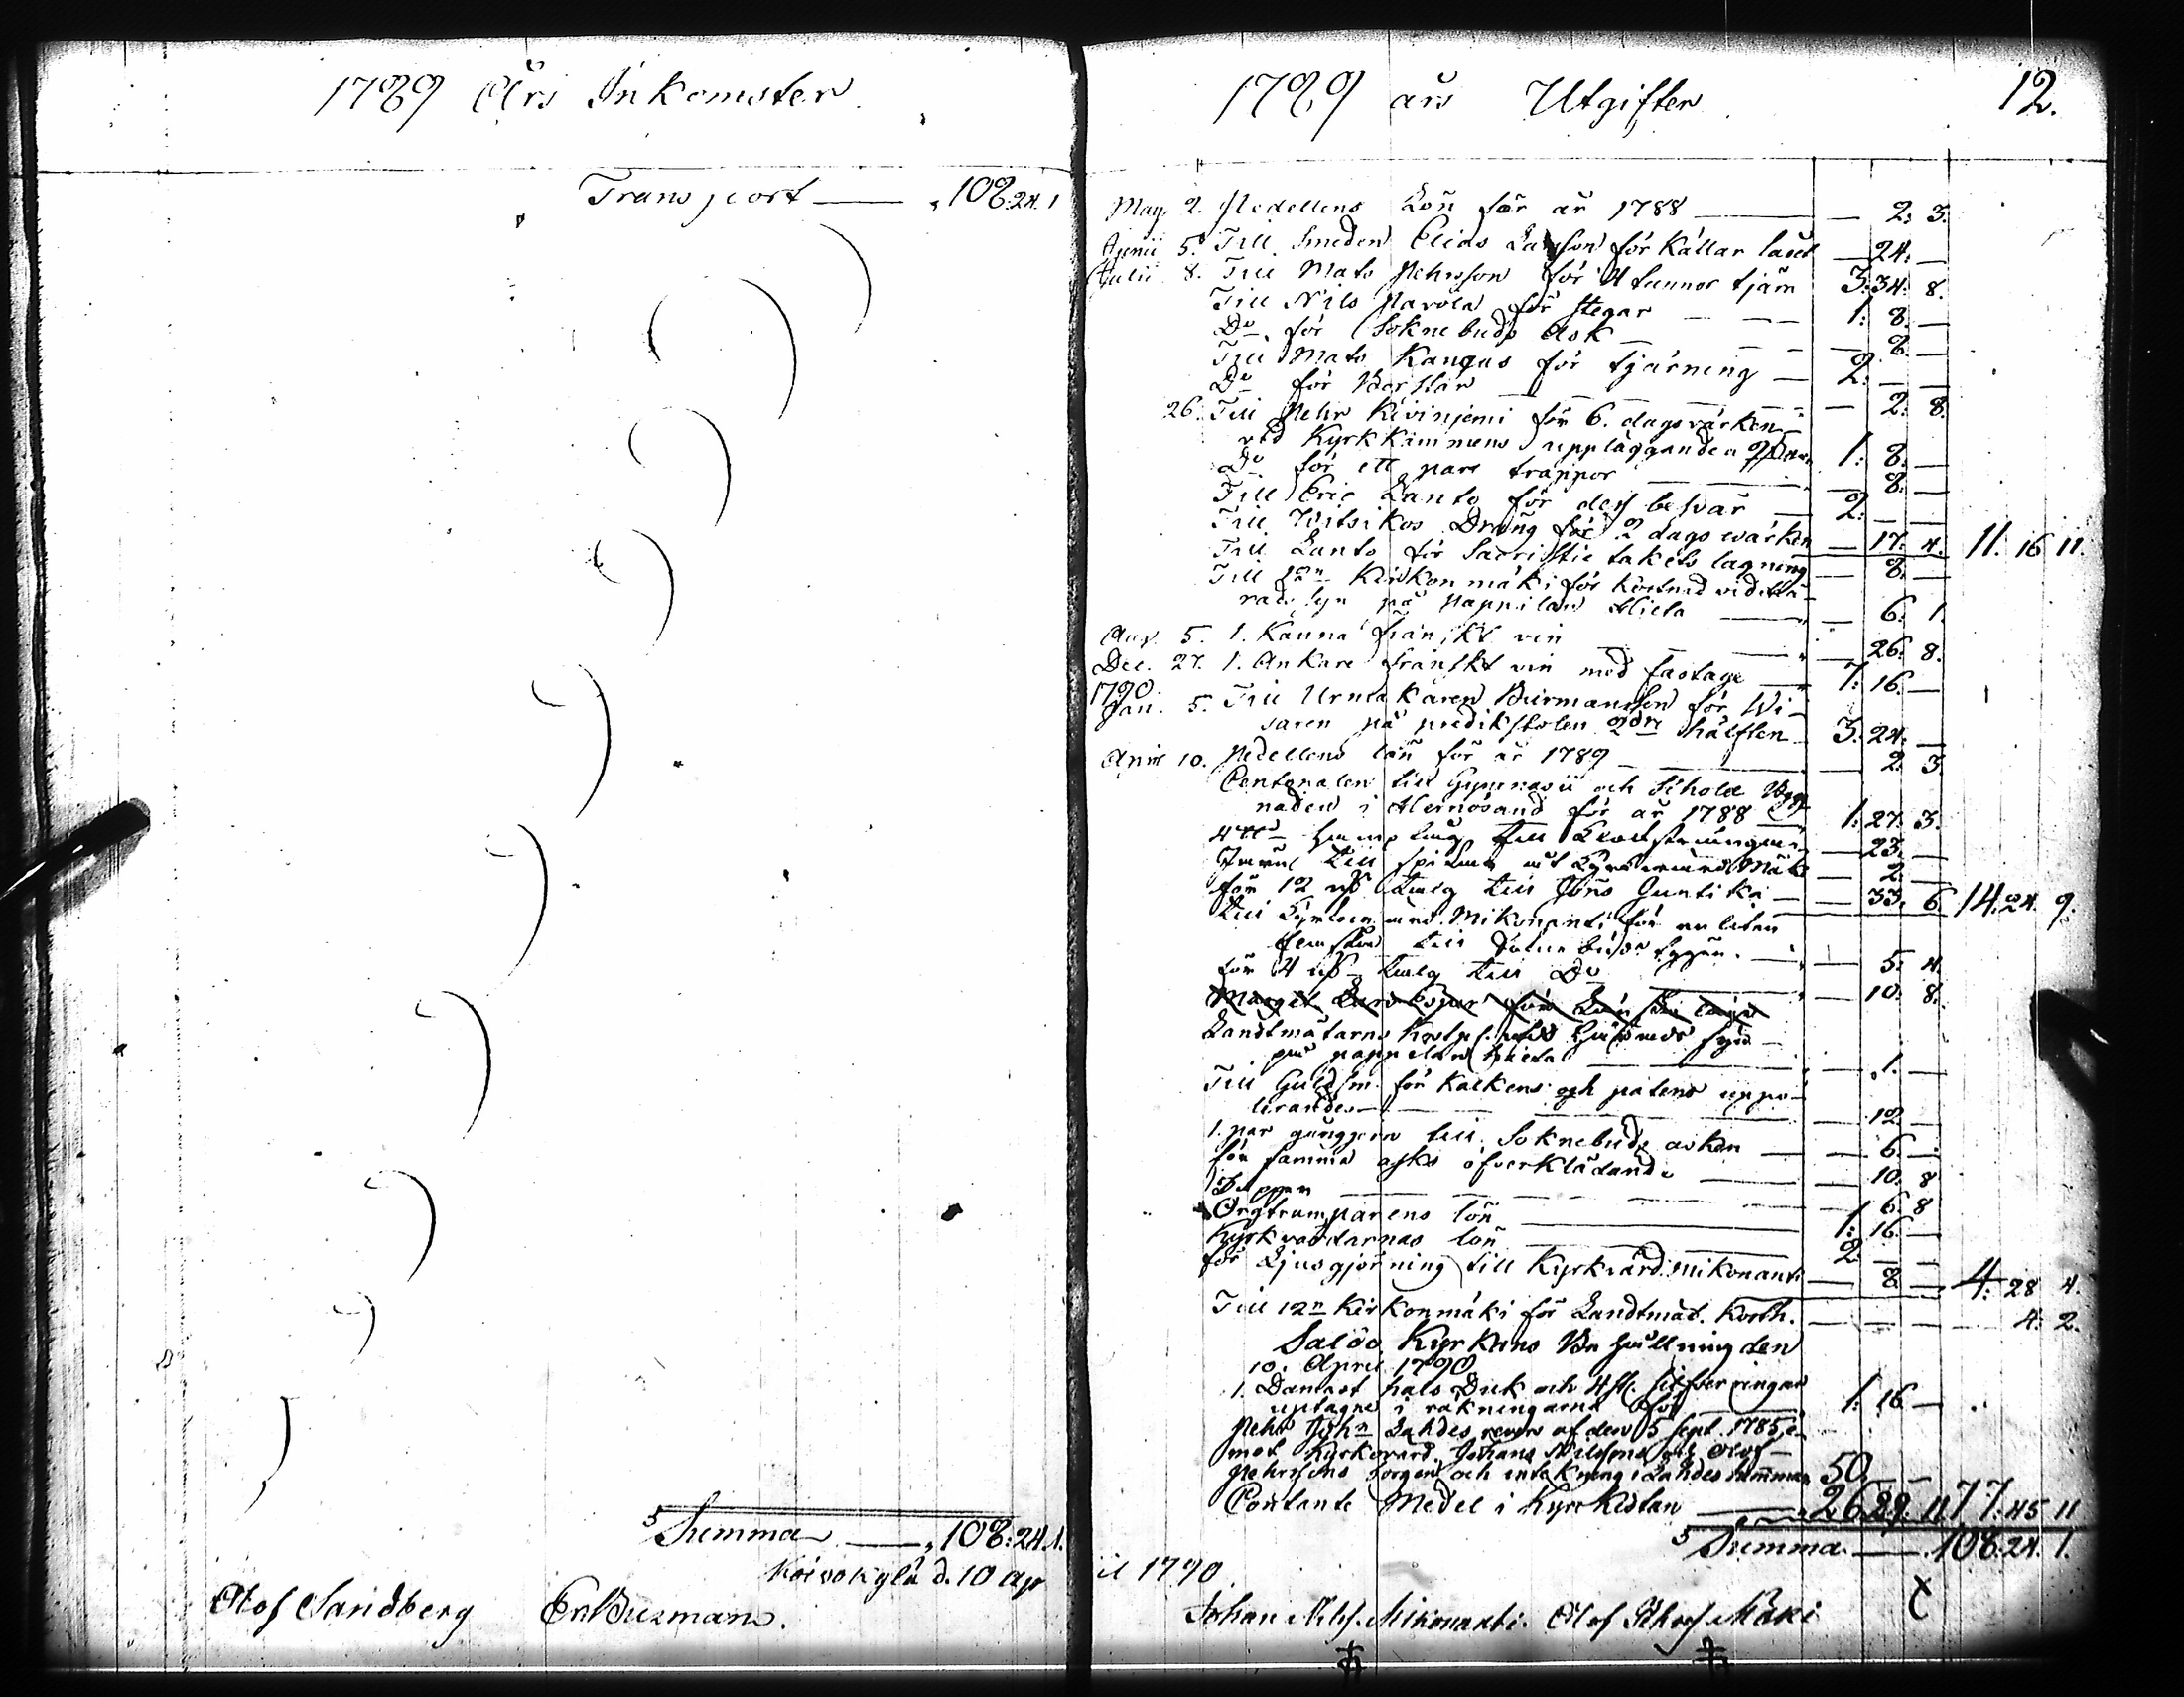 1789 Års Inkomster
Transport — 108:24.1
Summa — 108:24.1.
Koivokylä d. 10 Apr
Olof Sandberg Er. Burman.
1789 ars Utgifter 12.
May 2. Pedellens Lön för år 1788 — 2: 3.
Junii 5. Till Smeden Elias för Källar låset — 24. —
Julii 8. Till Mats Pehrsson för 4 tunnor tjära 3: 34: 8.
Till Nils Pavola för stegar — 1: 8. —
Do för Soknebuds Ask — 8. —
Till Mats Kangas för tjärning — 2: — —
Do för — 2: 8.
26. Till Pehr Kivinjemi för 6. dagsvärken
vid Kyrkkammens uppläggande a 1: 8. —
Do för ett pare trappor — 8. —
Till Eric Lanto för dess besvär — 2: — —
Till Witsikos Dräng för 2 dagsvärken — 17: 4. 11: 16 11.
Till Lanto för Sacristie takets lagning — 8. —
Till Kirkonmäki för kostnad vid
rads syn på Pappilan Hieta — 6: 1.
Aug. 5. 1. Kanna franskt vin — 26: 8.
Dec. 27. 1. Ankare franskt vin med fastage — 7: 16. —
1790.
Jan. 5. Till Urmakaren Burmansson för Wi-
saren på predikstolen 2dre hälften 3: 24. —
April 10. Pedellens lön för år 1789 — 2. 3.
Centonalen till Gymnasii och Schole Bygg
naden i Hernösand för år 1788 — 1: 27: 3.
till — 23. —
till — 2. —
för 12 till Jöns Juntika — 33. 6. 14: 24. 9.
till Mikonanti för en liten
till — 5: 4.
för 4 till Do — 10: 8.
Landtmätarns
på pappilan hieta — 1. —
Till Guldsm. för Kalkens och patens uppo-
lerande — 12 —
1. par till Soknebuds asken — 6. —
för samma asks öfverklädande — 10. 8
Papper — 6. 8
Orgtramparens lön — 1: 16. —
Kyrkvärdarnas lön — 2. — —
för Ljusgjörning till Kyrkvärd. Mikonanti — 8 — 4: 28 4.
Till 12n Kirkonmäki för Landtmät. Kosth. — 4: 2.
Saldo Kyrkans Behållning den
10. April 1790
1. Damast hals Duk och 4 st. silfver ringar
uptagne i räkningarna för 1: 16. —
Pehr Johs Lahdes revers af den 5 Sept. 1785, e-
mot Kyrkovärd. Johans Nilssons och Olof
Pehrssons borgen och intekning i Lahdes hemman 50. — —
Contante Medel i Kyrckistan — 26. 29. 11 77: 45 11
Summa — 108: 24. 1.
il 1790
Johan Nilss. Mikonanti. Olof Pehrss. Mäki